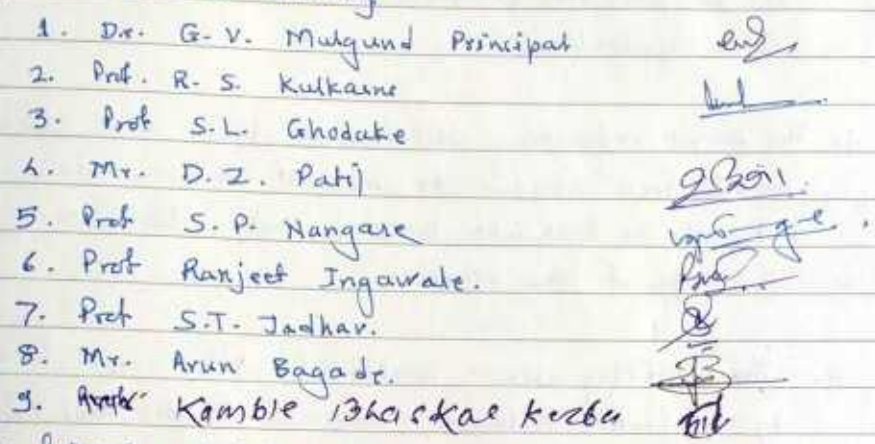 1. Dr. G. V. Mulgund Principal
2. Prof. R. S. Kulkarni
3. Prof S.L. Ghodake
4. Mr. D. Z. Patil
5. Prof S. P. Nangare
6. Prof Ranjeet Ingawale.
7. Prof S.T. Jadhav.
8. Mr. Arun Bagade.
9. Kamble Bhaskar